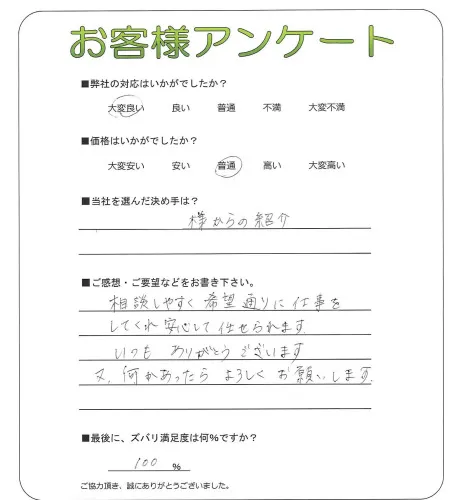 お客様アンケート
■弊社の対応はいかがでしたか？
大変良い 良い 普通 不満 大変不満
■価格はいかがでしたか？
大変安い 安い 普通 高い 大変高い
■当社を選んだ決め手は？
様からの紹介
■ご感想・ご要望などをお書き下さい。
相談しやすく希望通りに仕事を
してくれ安心して任せられます。
いつも ありがとうございます
又、何かあったら よろしく お願いします。
■最後に、ズバリ満足度は何％ですか？
100 ％
ご協力頂き、誠にありがとうございました。